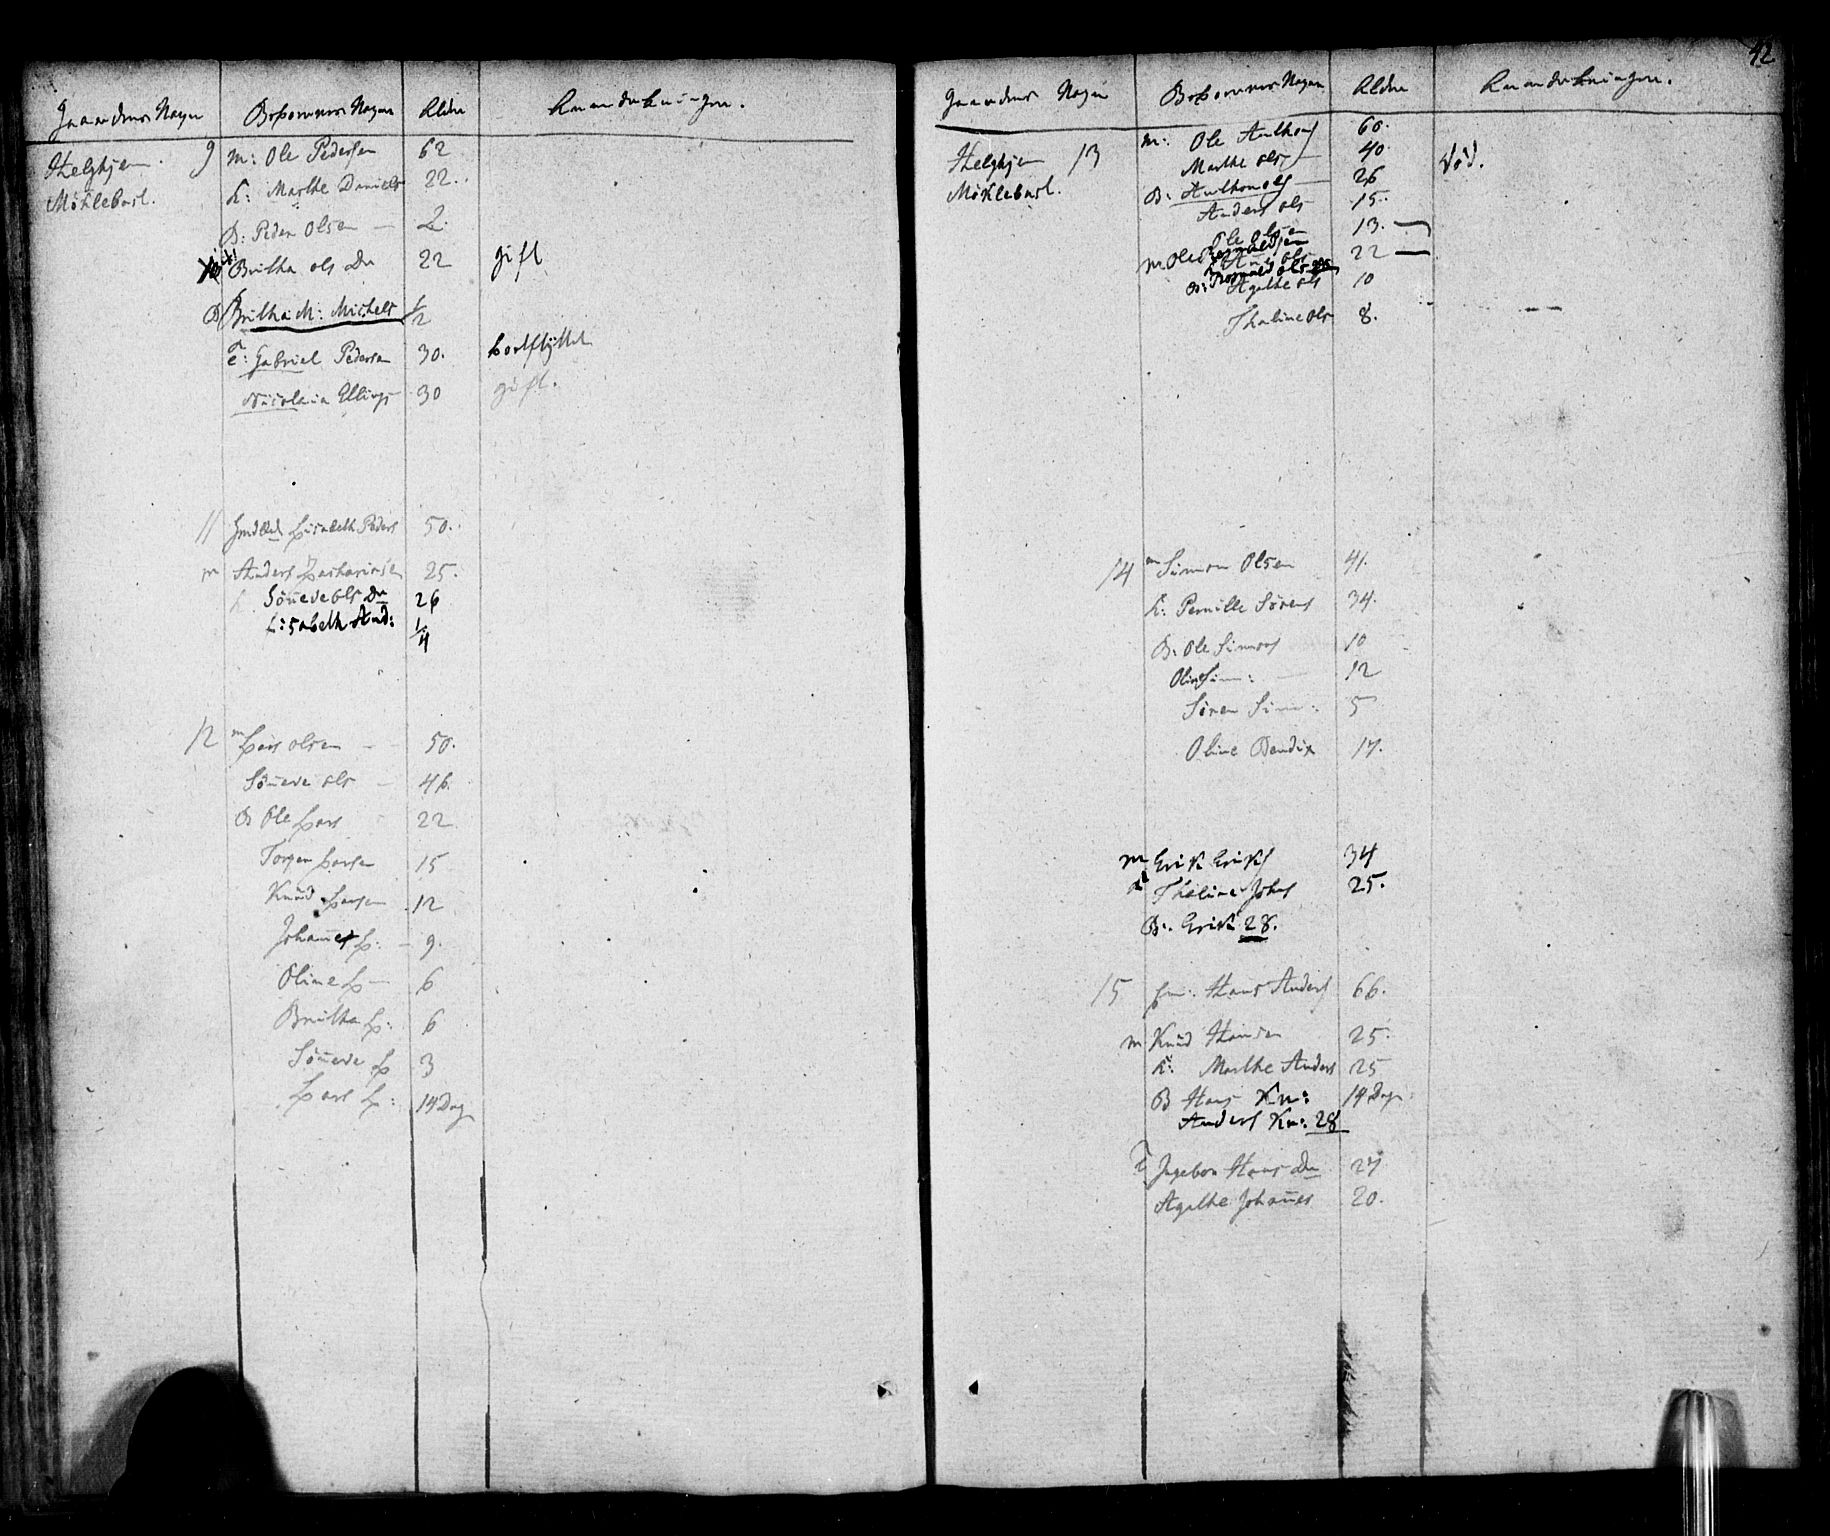 Gaardenes Navne Beboernes Navne Alder Anmærkninger.
Helghjem 9 M: Ole Pedersen 62
Møklebust. K: Marthe Daniels 22.
B: Peder Olsen — 2.
Britha Ols Dr 22 gift
B Britha M: Michels 1/2
T: Gabriel Pedersen 30. bortflyttet
Nicolaia Ellings 30 gift.
11 Lisabeth Peders 50.
m Anders Zachariasen 25.
K Sönneve Ols Dr 26
Lisabeth And: 1/4
12 m Lars Olsen — 50.
Sönneve Ols — 46.
B Ole Lars 22
Torger Larsen 15
Knud Larsen 12
Johannes L: — 9.
Oline L — 6
Britha L: 6
Sönneve L 3
Lars L: 14 Dag
42
Gaardenes Navne Beboernes Navne Alder Anmærkninger.
Helghjem 13 M: Ole Anthons 60.
Møklebust. Marthe Ols — 40. død.
B: Anthon Ols — 26
Anders Ols 15.
Ole Olsen 13. —
m Ole 22 —
Agathe Ols 10
Thaline Ols 8.
14 m Simon Olsen 41.
K: Pernille Sörens 34.
B: Ole Simons 10
Oline Sim: 12
Sören Sim: 5
Oline Bendix 17.
m Erik Eriks 34
K Thaline Johs 25.
B: Erik 28.
15 Hans Anders 66.
m Knud Hansen 25.
K: Marthe Anders 25
B Hans Kn: 14 Dage
Anders Kn: 28
T Ingebor Hans Dr 27
Agathe Johannes 20.